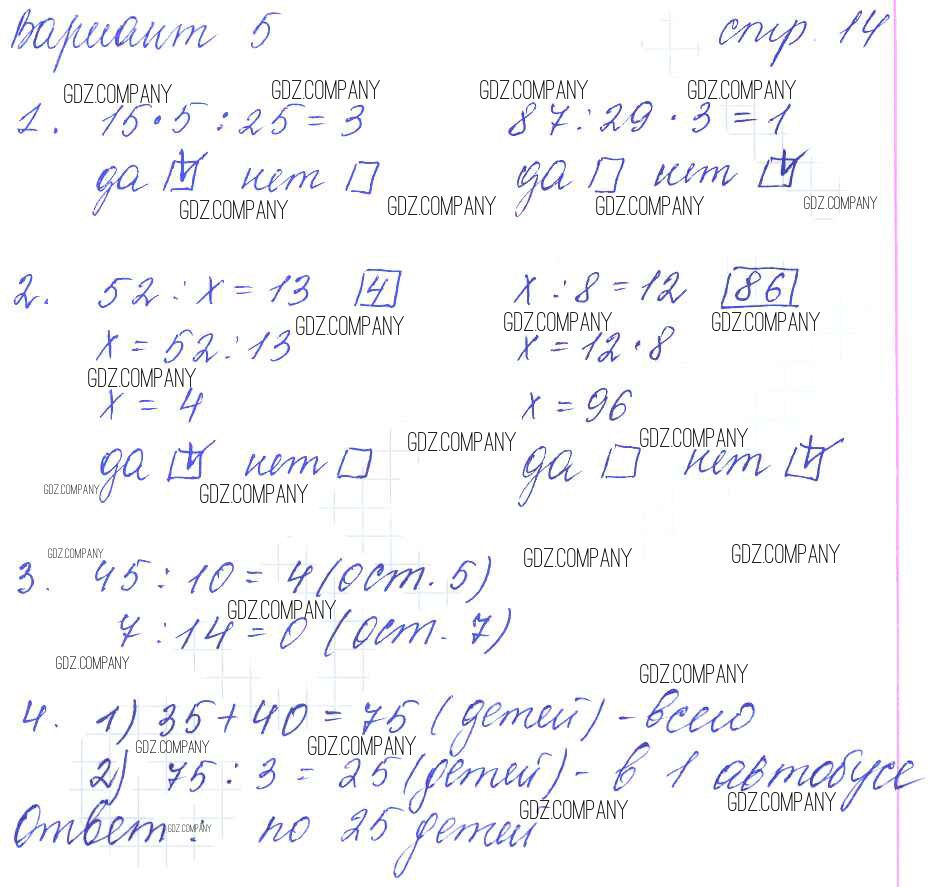 Вариант 5 стр. 14
GDZ.COMPANY GDZ.COMPANY GDZ.COMPANY GDZ.COMPANY
1. 15·5:25=3 87:29·3=1
да нет да нет
GDZ.COMPANY GDZ.COMPANY GDZ.COMPANY GDZ.COMPANY
2. 52:х=13 4 х:8=12 86
GDZ.COMPANY GDZ.COMPANY GDZ.COMPANY
х=52:13 х=12·8
GDZ.COMPANY
х=4 х=96
GDZ.COMPANY GDZ.COMPANY
да нет да нет
GDZ.COMPANY GDZ.COMPANY
GDZ.COMPANY GDZ.COMPANY GDZ.COMPANY
3. 45:10=4(ост.5)
GDZ.COMPANY
7:14=0(ост.7)
GDZ.COMPANY GDZ.COMPANY
4. 1) 35+40=75(детей)-всего
GDZ.COMPANY GDZ.COMPANY
2) 75:3=25(детей)-в 1 автобусе
GDZ.COMPANY GDZ.COMPANY
Ответ: по 25 детей
GDZ.COMPANY